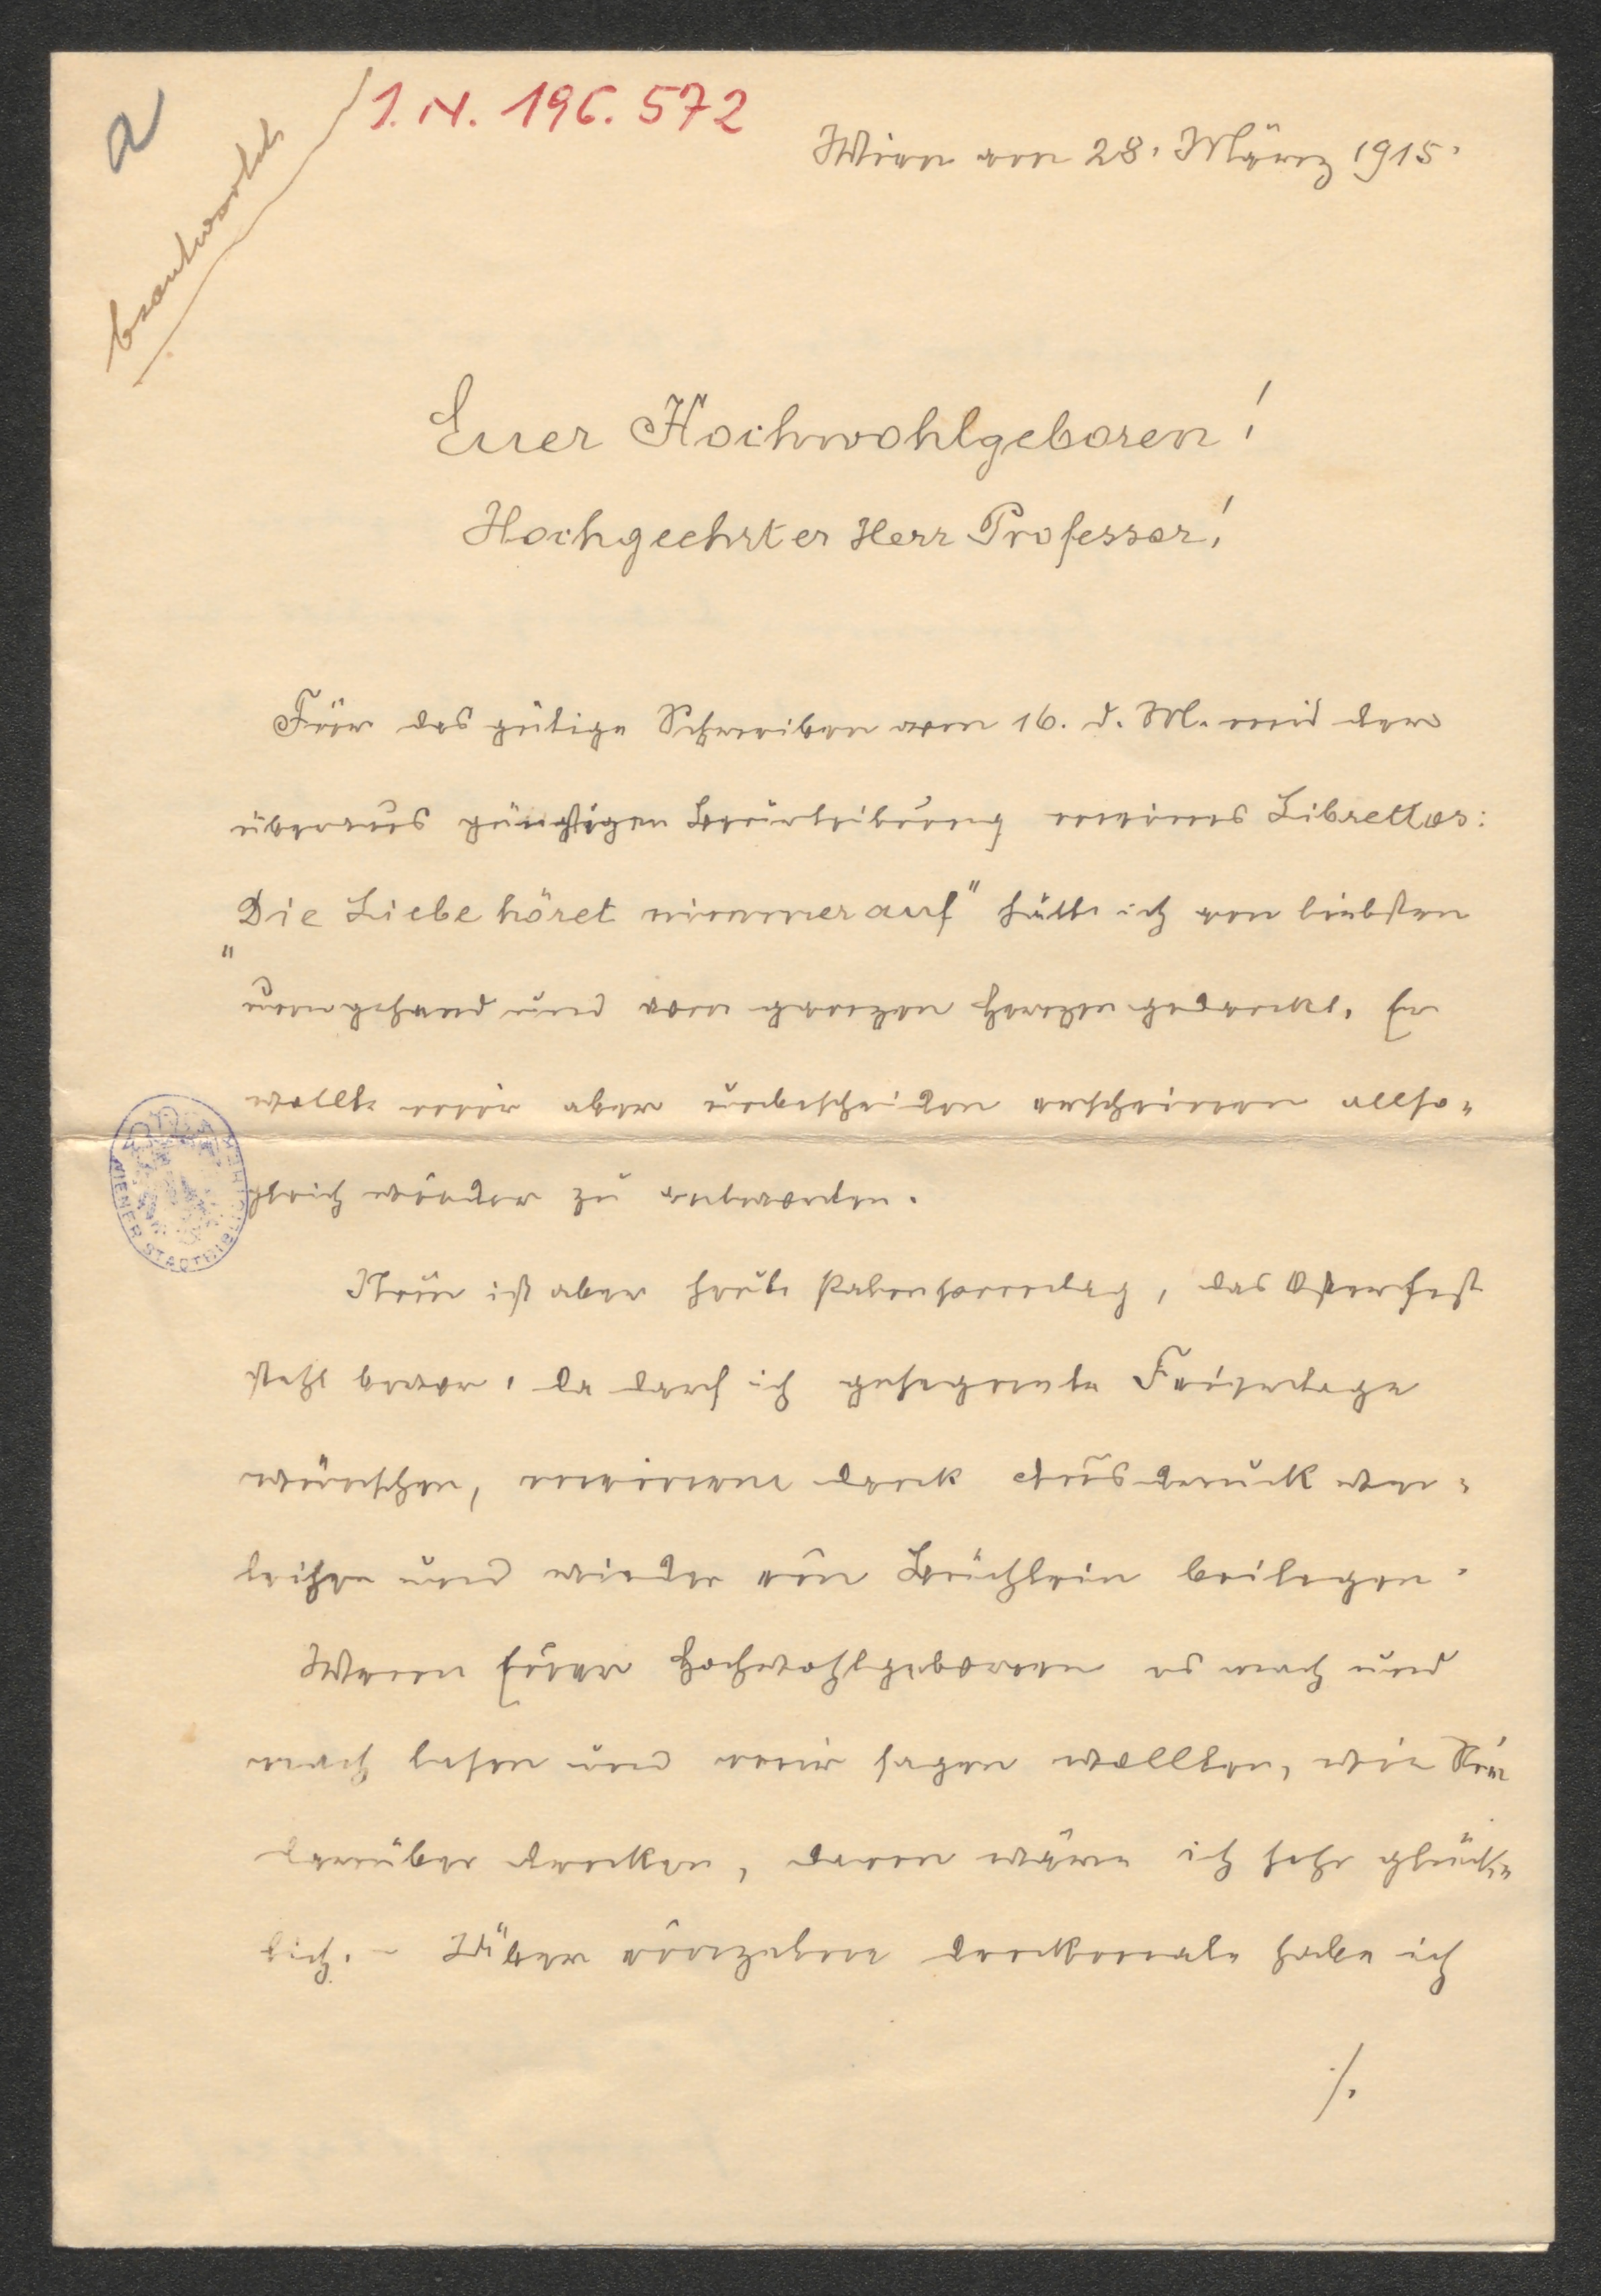 a
beantwortet
I.N. 196.572
Wien am 28. März 1915.
Euer Hochwohlgeboren!
Hochgeehrter Herr Professor!
Für das gütige Schreiben vom 16. d. M. mit der
überaus günstigen Beurteilung meines Librettos:
„Die Liebe höret nimmer auf" hätte ich am liebsten
umgehend und vom ganzen Herzen gedankt. Er
wollte mir aber unbescheiden erscheinen allso-
gleich wieder zu antworten.
Nun ist aber heute Palmsonntag, das Osterfest
steht bevor, da darf ich gesegnete Feiertage
wünschen, meinem Dank Ausdruck ver-
leihen und wieder ein Büchlein beilegen.
Wenn Euer Hochwohlgeboren es nach und
nach lesen und mir sagen wollten, wie Sie
darüber denken, dann wäre ich sehr glück-
lich. - Über einzelne Denkmale habe ich
./.
WIENER STADTBIBLIOTHEK